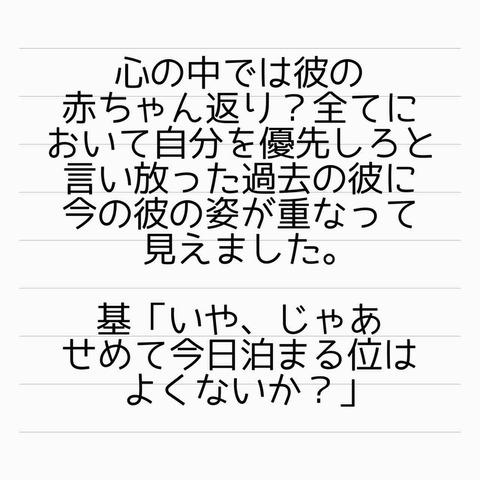 心の中では彼の
赤ちゃん返り？全てに
おいて自分を優先しろと
言い放った過去の彼に
今の彼の姿が重なって
見えました。
基「いや、じゃあ
せめて今日泊まる位は
よくないか？」